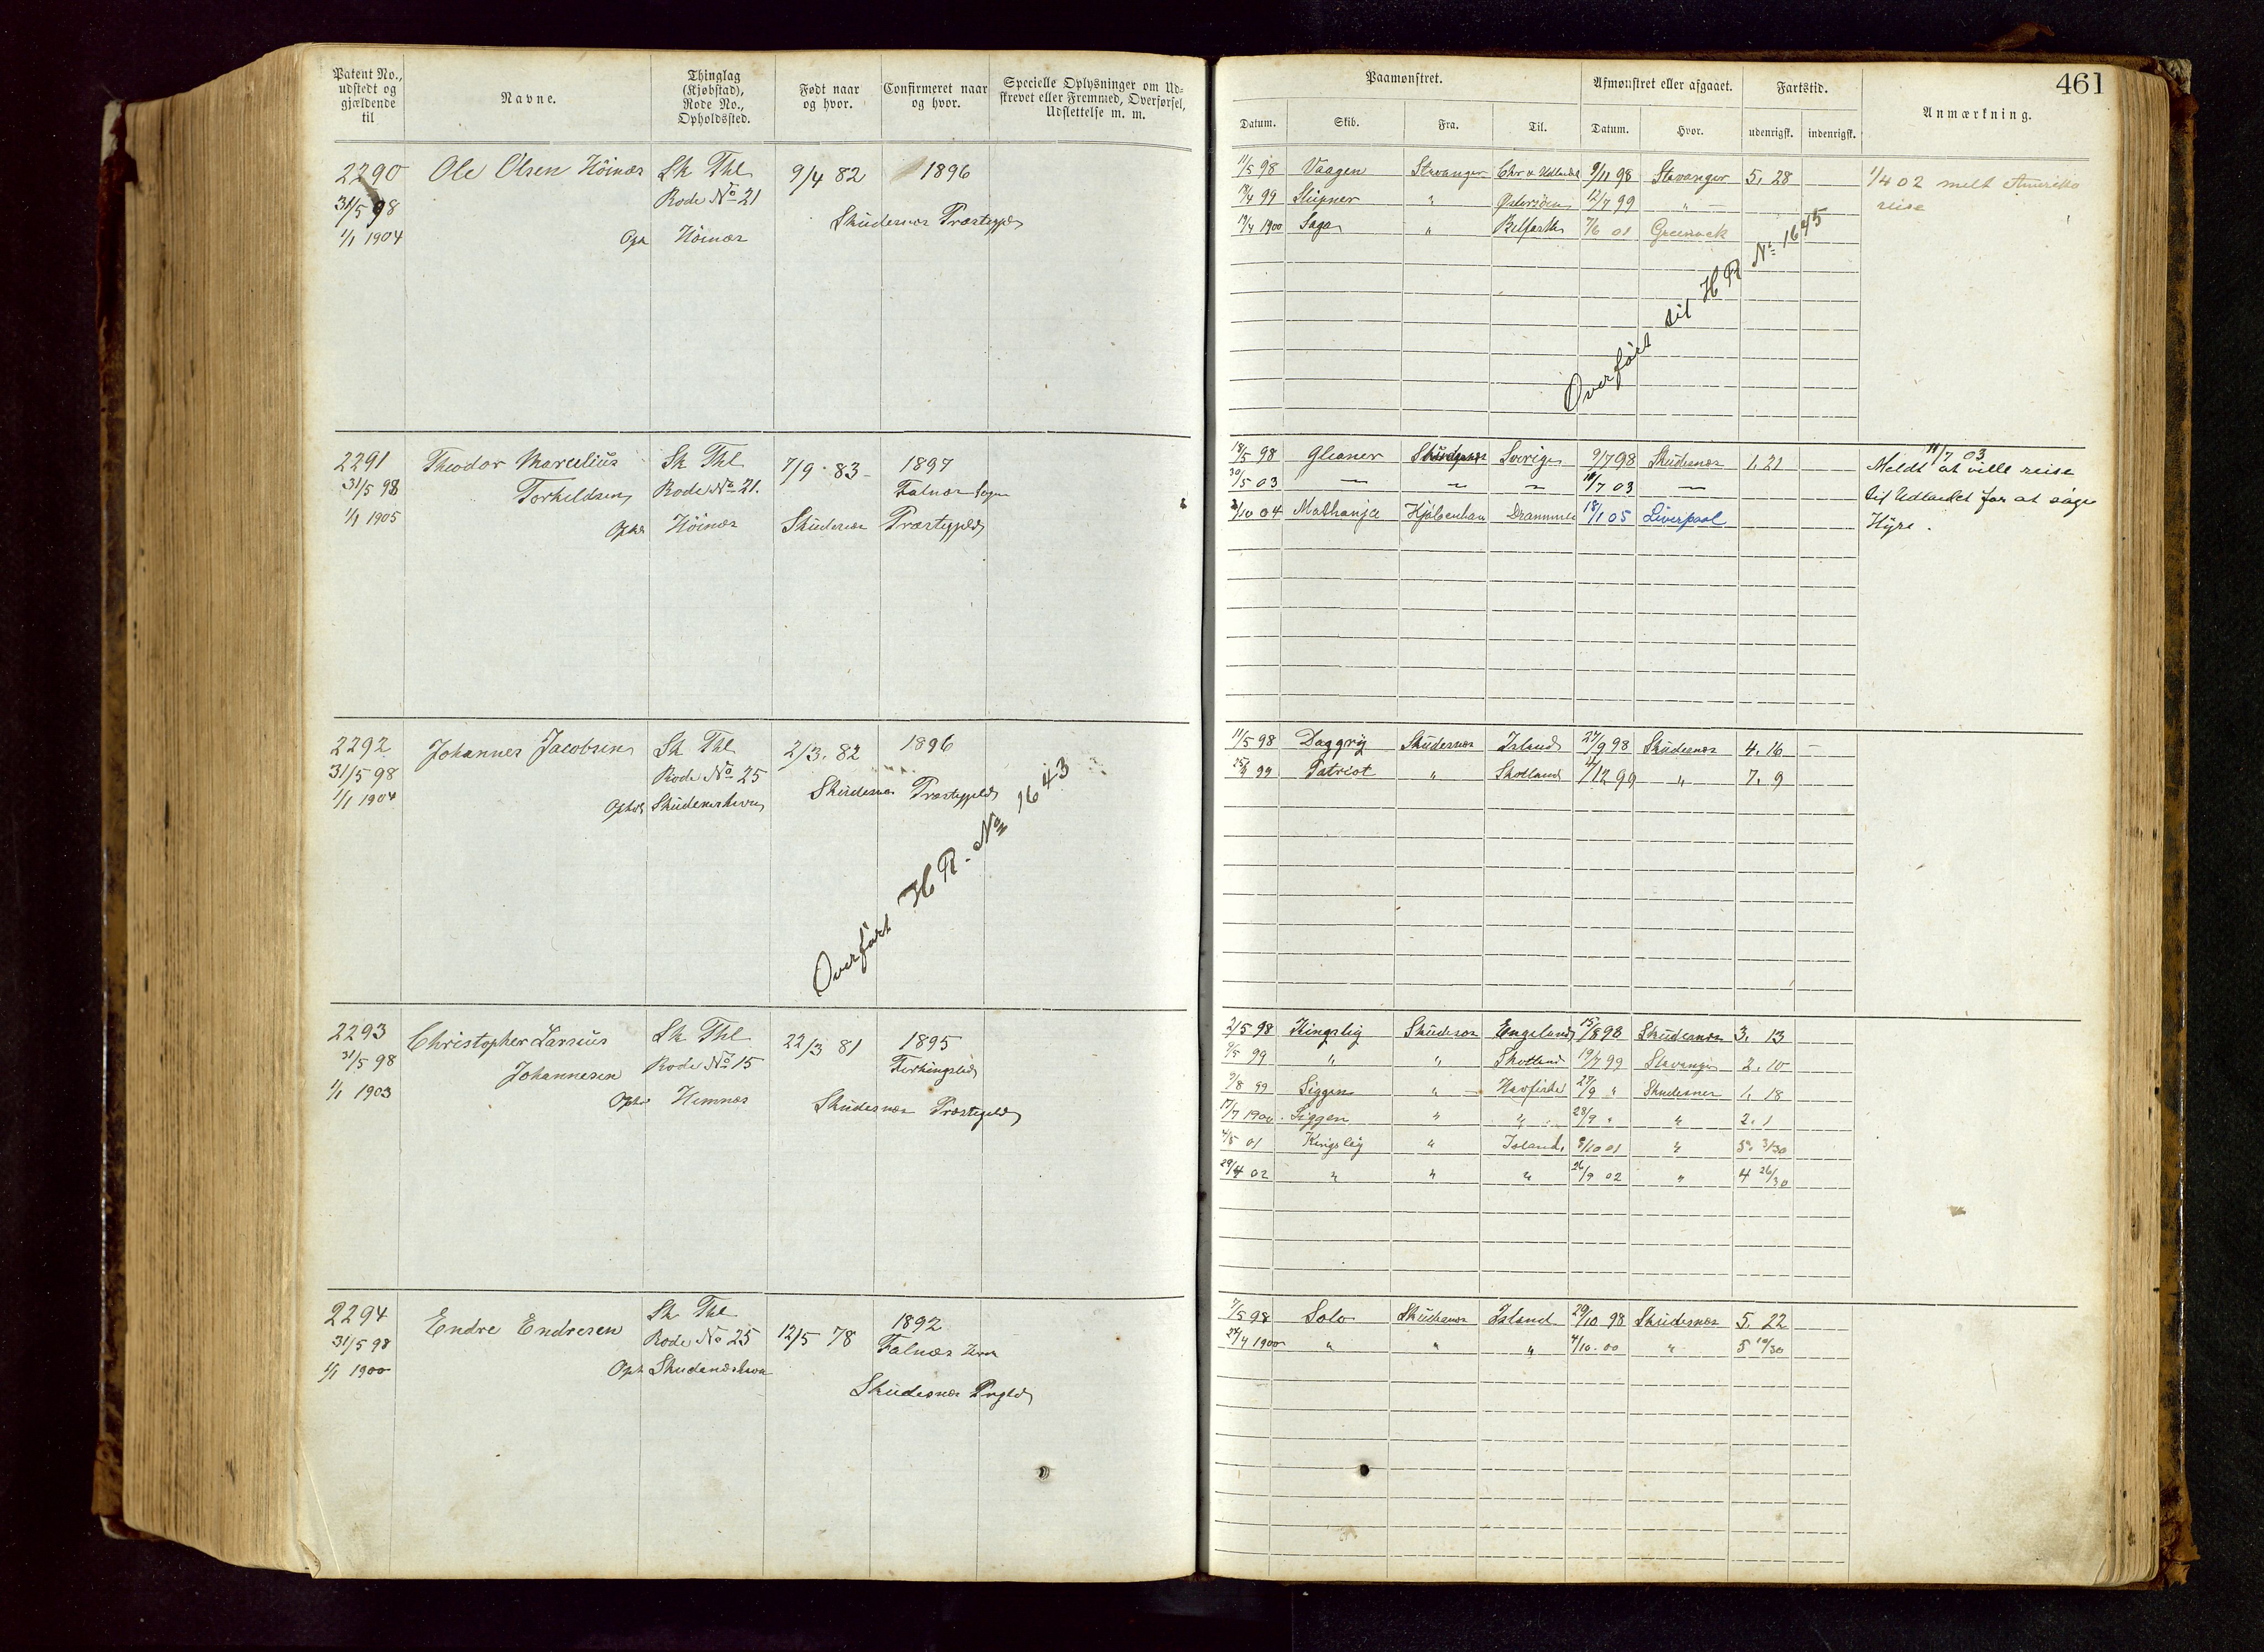 461
Patent No., udstedt og gjældende til
Navne.
Thinglag (Kjøbstad), Rode No., Opholdssted.
Født naar og hvor.
Confirmeret naar og hvor.
Specielle Oplysninger om Udskrevet eller Fremmed, Overførsel, Udslettelse m. m.
Paamønstret.
Afmønstret eller afgaaet.
Fartstid.
Anmærkning.
Datum. Skib. Fra. Til. Datum. Hvor. udenrigsk. indenrigsk.
2290 Ole Olsen Höinæs Sk Thl 9/4 82 1896
31/5 98 Rode No 21
Skudesnæs Præstegjeld
1/1 1904 Höinæs
11/5 98 Vaagen Stavanger Chr & Udlandet 9/11 98 Stavanger 5. 28
1/4 02 melt Amerika
reise
99 Sleipner " Østersöen 12/7 99 " —
1900 Saga " Belfast 7/6 01 Greenock
Overført til H R No 1645
2291 Theodor Marcelius Sk Thl 7/9 83 1897
31/5 98 Torkildsen Rode No 21. Falnæs Sogn
1/1 1905 Höinæs Skudesnæs Præstegjeld
18/5 98 Gleaner Skudesnæs Sverige 9/7 98 Skudesnæs 1. 21
11/7 03
Meldt at ville reise
30/5 03 — — — 10/7 03 —
til Udlandet for at söge
04 Mathanja Kjöbenhavn Drammen 18/1 05 Liverpool
Hyre.
2292 Johannes Jacobsen Sk Thl 2/3. 82 1896
31/5 98 Rode No 25
1/1 1904 Skudeneshavn Skudesnæs Præstegjeld
Overført H R. No 1643
11/5 98 Daggry Skudesnæs Island 27/9 98 Skudesnæs 4. 16 —
99 Patriot " Skotland 12 99 " 7. 9
2293 Christopher Larsius Sk Thl 22/3 81 1895
31/5 98 Johannesen Rode No 15 Ferkingstad
1/1 1903 Hemnæs Skudesnæs Præstegjeld
2/5 98 Kingsley Skudesnæs England 15/8 98 Skudesnæs 3. 13
9/5 99 " " Skotland 19/7 99 Stavanger 2. 10
9/8 99 Siggen " Havfiske 27/9 " Skudesnes 1. 18
17/7 1900 Siggen " " 28/9 " " 2. 1
4/5 01 Kingsley " Island 01 " 5. 3/30
29/4 02 " " " 26/9 02 " 4 26/30
2294 Endre Endresen Sk Thl 12/5 78 1892
31/5 98 Rode No 25 Falnæs
1/1 1900 Oph Skudenæshavn
Skudesnæs Prgld
7/5 98 Solo Skudesnæs Island 29/10 98 Skudesnæs 5 22
24/4 1900 " " " 4/10. 00 " 5 10/30